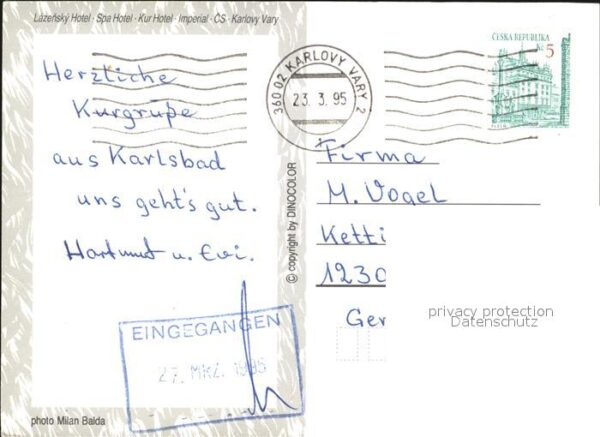 Lázeňský Hotel · Spa Hotel · Kur Hotel · Imperial · ČS · Karlovy Vary
Herzliche
Kurgrüße
aus Karlsbad
uns geht's gut.
Hartmut u. Evi.
EINGEGANGEN
27. MRZ. 1995
photo Milan Balda
© copyright by DINOCOLOR
360 02 KARLOVY VARY 2
23.3.95
ČESKÁ REPUBLIKA
Kč 5
PLZEŇ
Firma
M. Vogel
Ketti
1230
Ger
privacy protection
Datenschutz